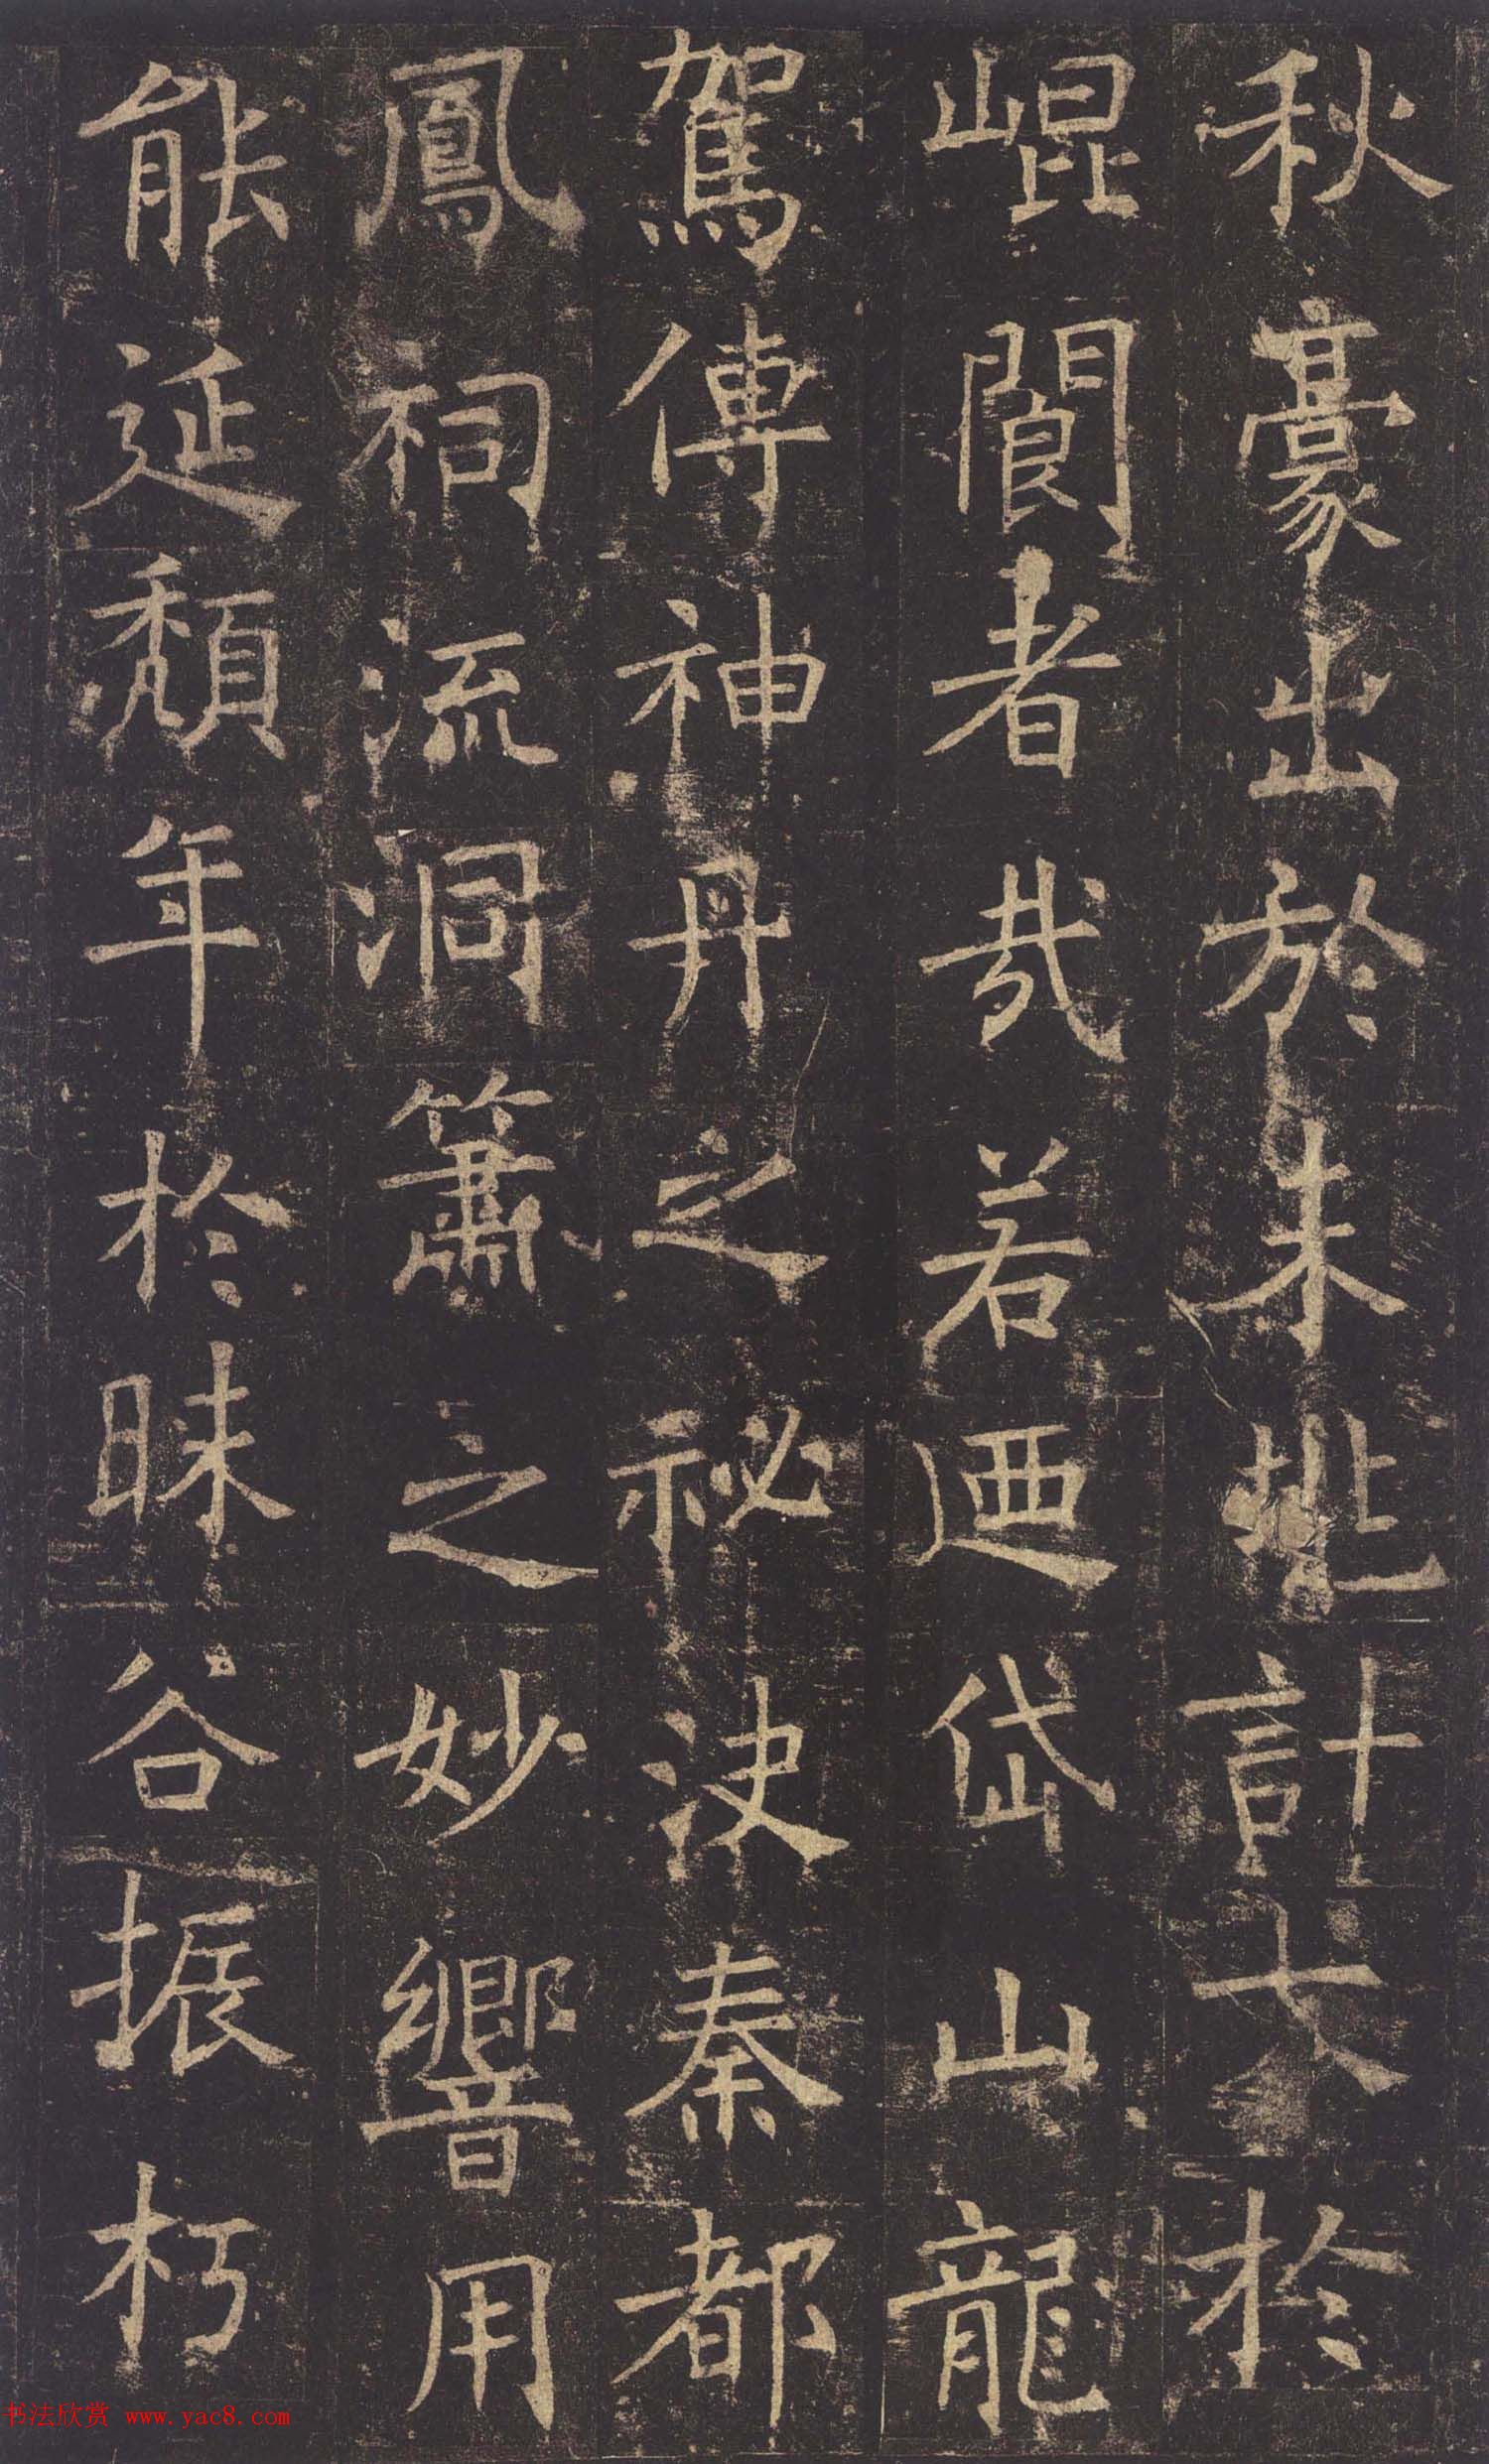 秋豪出於未地計大於
崐閬者哉若迺岱山龍
駕傳神丹之祕決秦都
鳳祠流洞簫之妙響用
能延頹年於昧谷振朽
书法欣赏 www.yac8.com